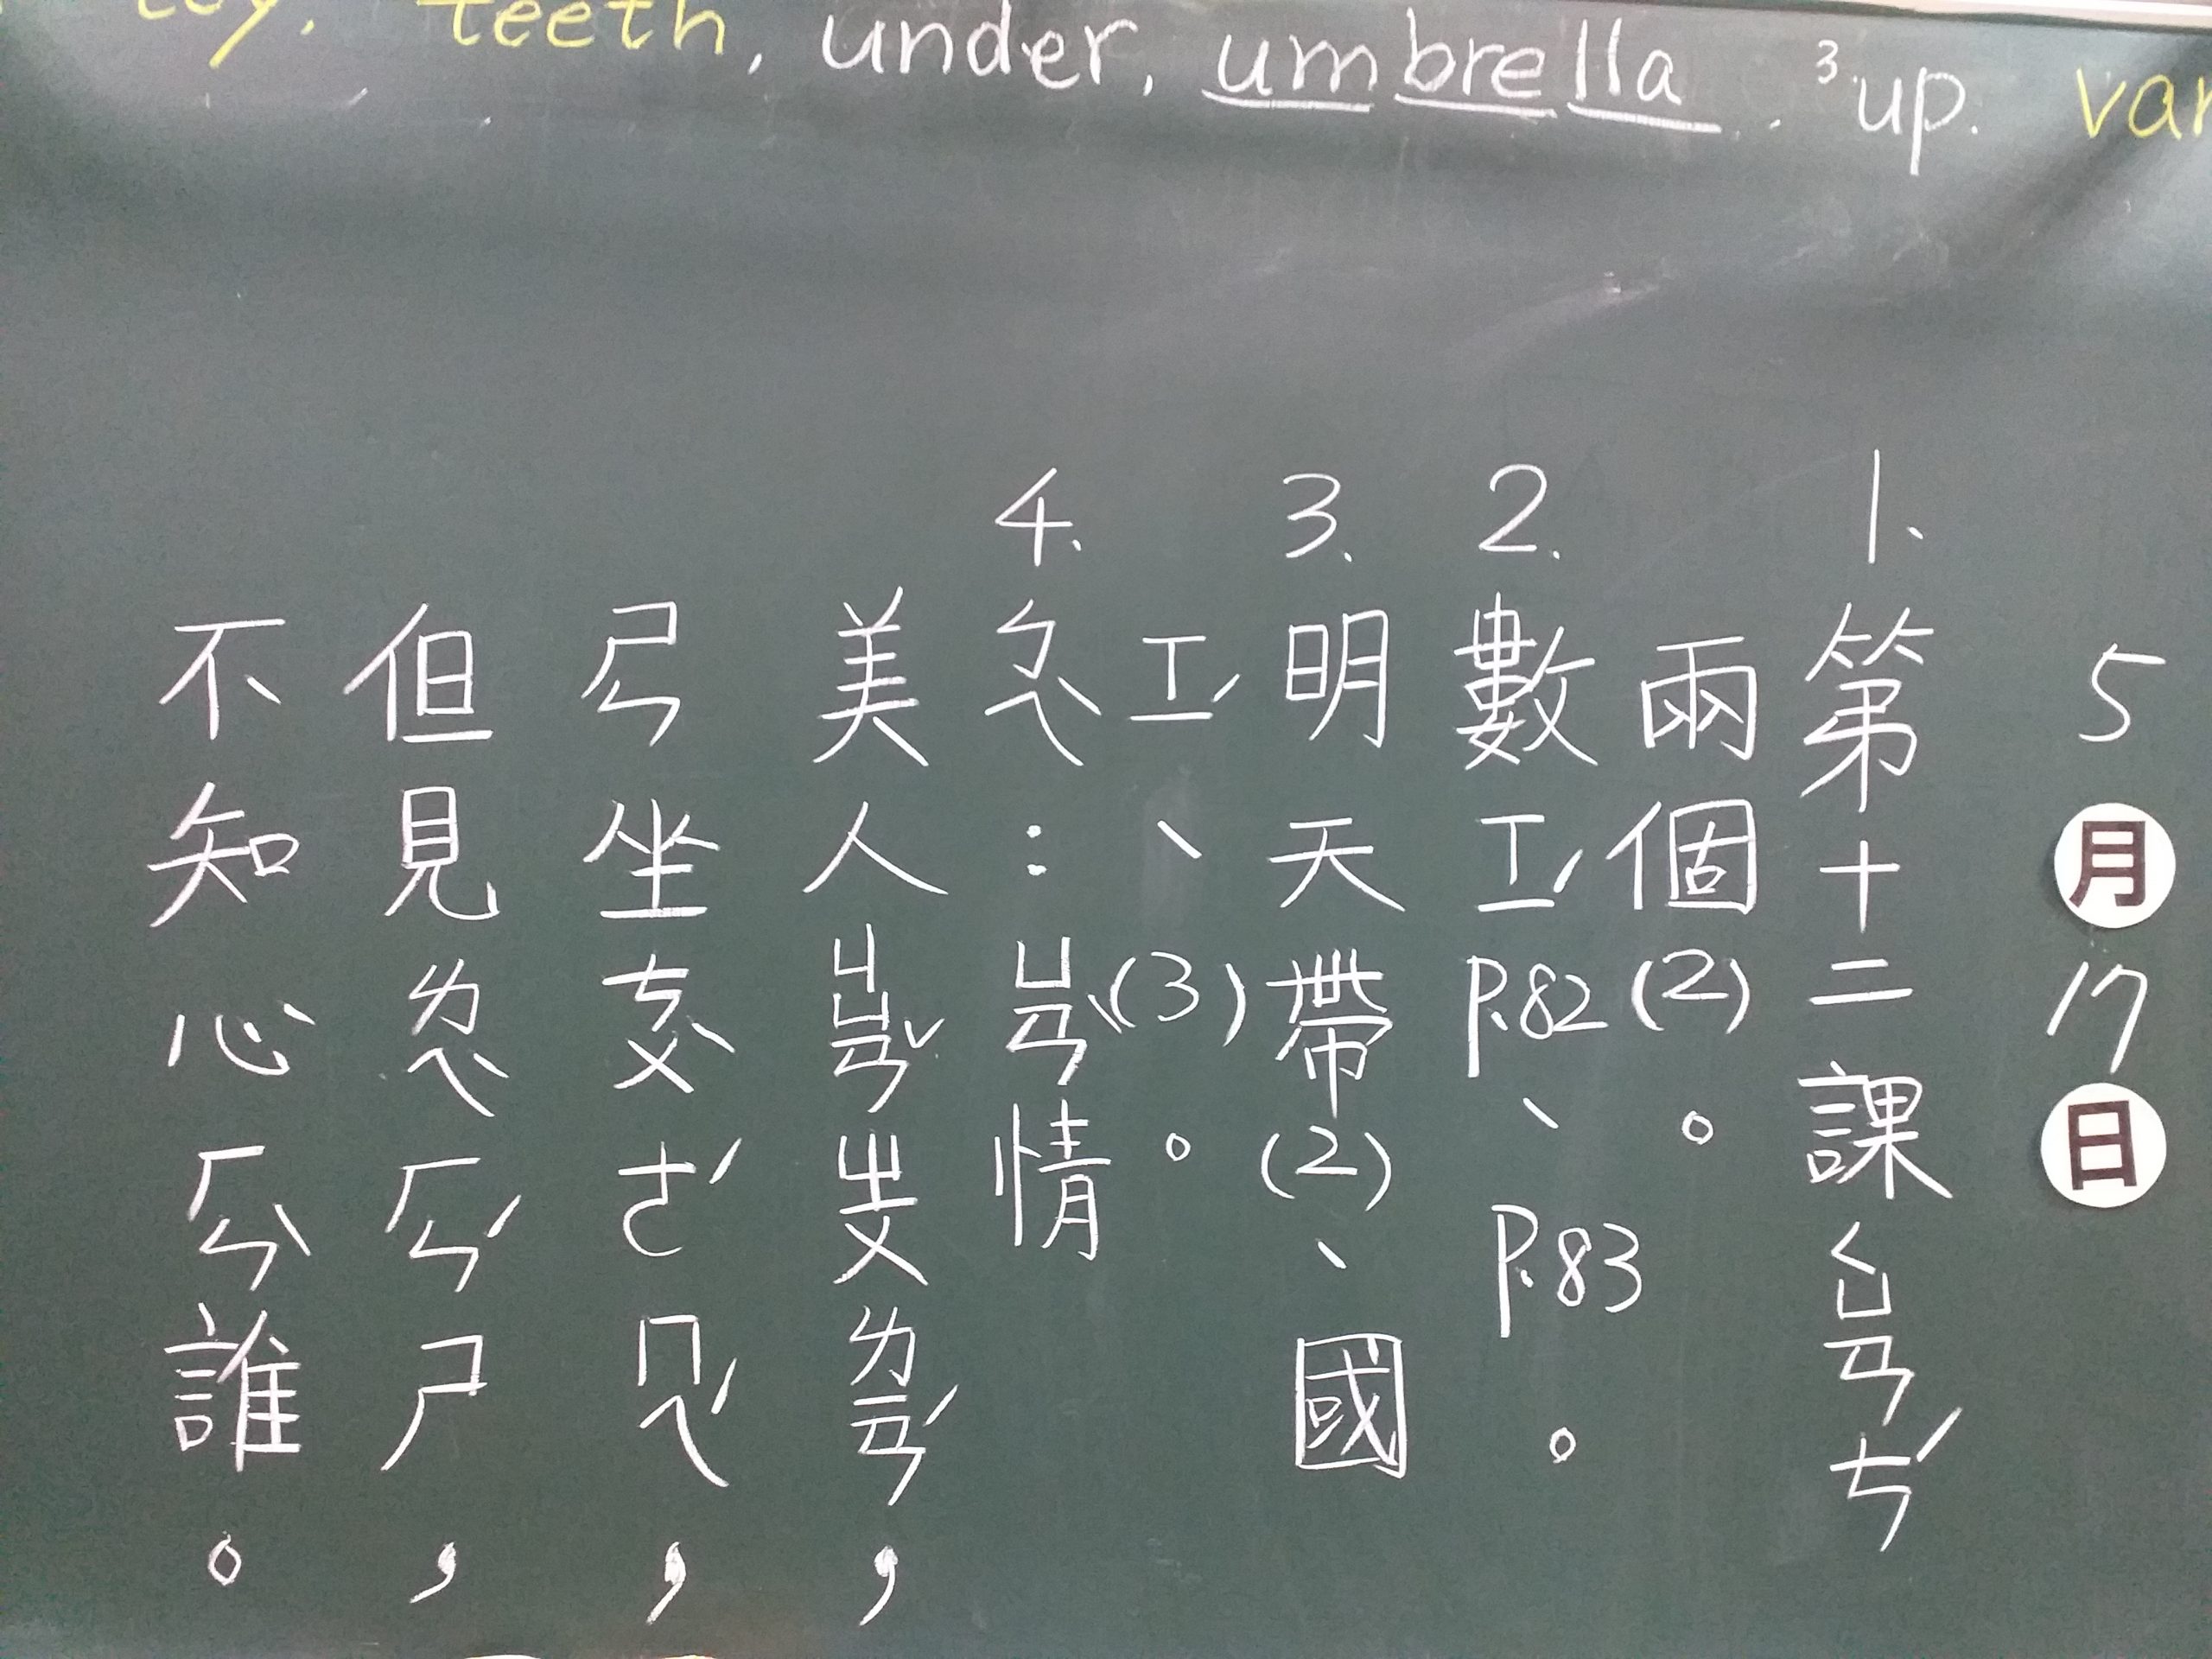 teeth, under, umbrella. 3.up.
5月17日
1、第十二課ㄑㄩㄢㄘˊ
兩個(2)。
2、數ㄒㄧˊP.82、P.83。
3、明天帶(2)、國
ㄒㄧˊ、(3)。
4、ㄅㄟˋ:ㄩㄢˋ情
美人ㄐㄩㄢˇㄓㄨㄌㄧㄢˊ，
ㄕㄣ坐ㄘㄨˋㄜˊㄇㄟˊ，
但見ㄌㄟˋㄏㄣˊㄕ，
不知心ㄏㄣˋ誰。